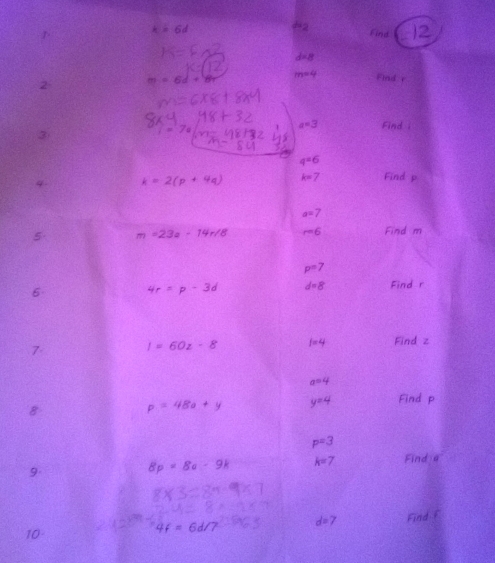 1. k = 6d d=2 Find 12
K = 6 × 2
K = 12
d=8
2. m = 6d + m=4 Find r
m = 6×8 + 8×4
8×4 48 + 32
3. i = 7a a=3 Find i
m = 48+32
m = 84
q=6
4. k = 2(p + 4q) k=7 Find p
a=7
5. m =23a - 14r/8 r=6 Find m
p=7
6. 4r = p - 3d d=8 Find r
7. l = 60z - 8 l=4 Find z
a=4
8. p = 48a + y y=4 Find p
p=3
9. 8p = 8a - 9k k=7 Find a
8×3=8a-9×7
10. 4f = 6d/7 d=7 Find f